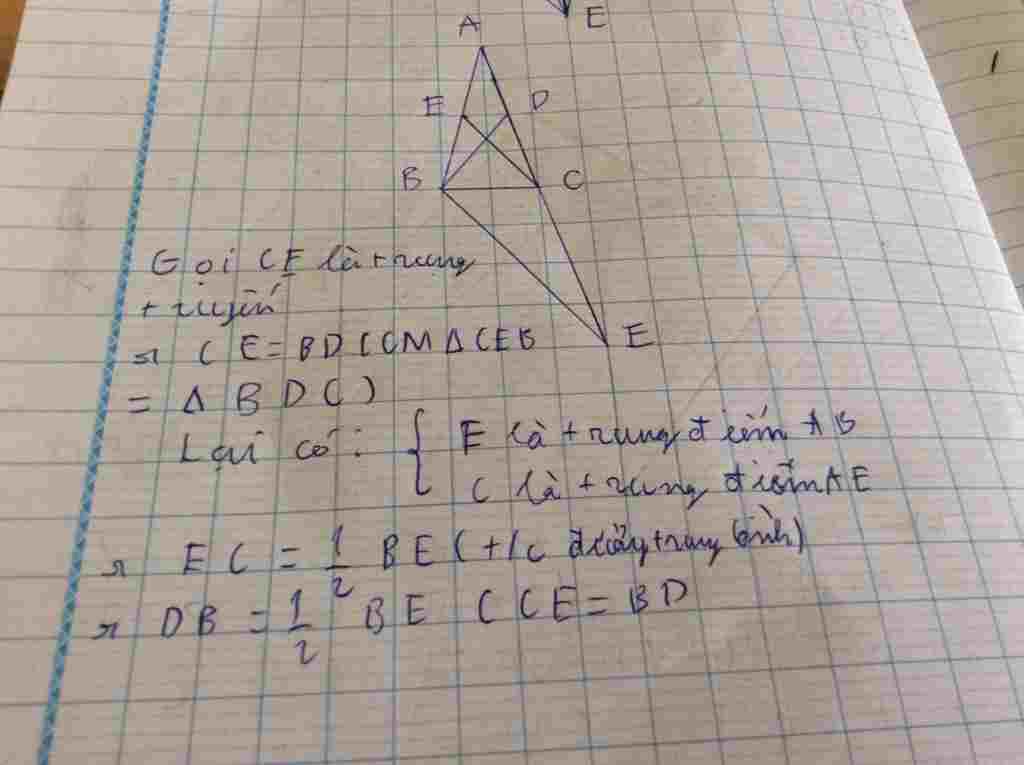 E
A
E D
B C
Gọi CE là trung
tuyến
E
=> CE = BD (CM Δ CEB
= Δ BDC)
Lại có: { E là trung điểm AB
C là trung điểm AE
=> EC = 1/2 BE (t/c đường trung bình)
=> DB = 1/2 BE (CE = BD